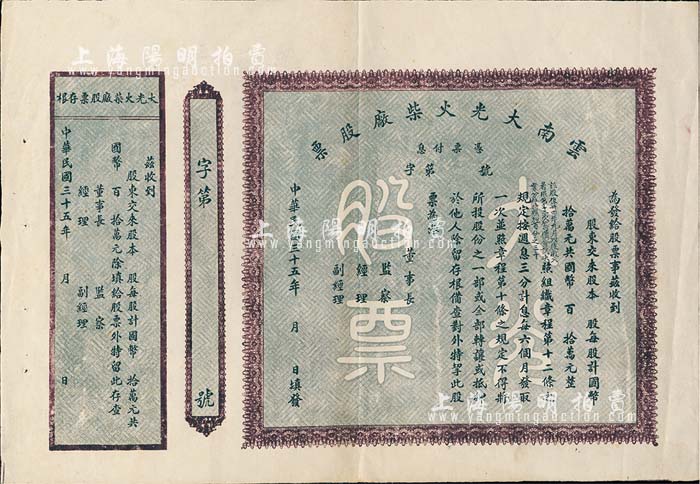 雲南大光火柴廠股票
憑票付息
字第 號
為發給股票事茲收到
股東交來股本 股每股計國幣
拾萬元共國幣 百 拾萬元整
照組織章程第十二條
規定按週息三分計息每六個月發取
一次並照章程第十條之規定不得將
所投股份之一部或全部轉讓或抵押
於他人除留存根備查對外特掣此股
票為
董事長
監察
經理
副經理
中華 十五年 月 日填發
股票
字第 號
大光火柴廠股票存根
茲收到
股東交來股本 股每股計國幣 拾萬元共
國幣 百 拾萬元除填給股票外特留此存查
董事長 監察
經理 副經理
中華民國三十五年 月 日
上海陽明拍賣
www.yangmingauction.com
上海陽明拍賣
www.yangmingauction.com
上海陽明拍賣
www.yangmingauction.com
上海陽明拍賣
www.yangmingauction.com